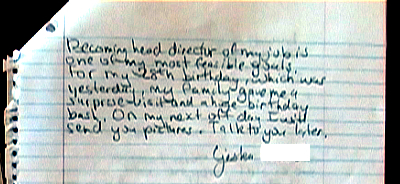 Becoming head director of my job is
one of my most feasible goals
for my 28th birthday, which was
yesterday, my family gave me a
surprise visit and a huge birthday
bash. On my next off day I will
send you pictures. Talk to you later.